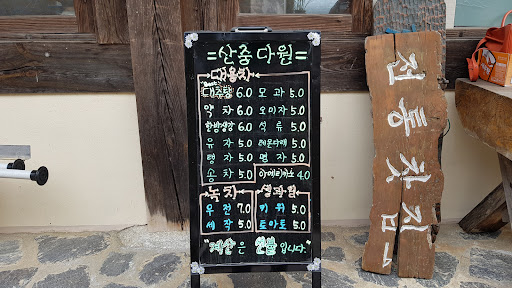 =산중다원=
대용차
대추탕 6.0 모과 5.0
약차 6.0 오미자 5.0
6.0 석류 5.0
유자 5.0 레몬마테 5.0
탱자 5.0 명자 5.0
송차 5.0 아메리카노 4.0
녹차 생과일
우전 7.0 키위 5.0
세작 5.0 토마토 5.0
"계산은 선불입니다."
전통찻집